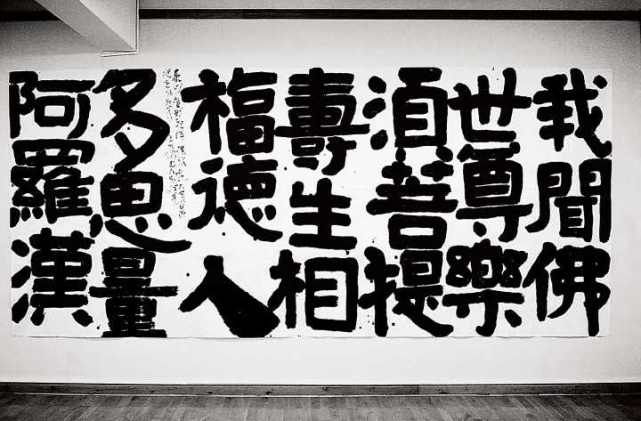 我聞佛
世尊樂
須菩提
壽生相
福德人
多思量
阿羅漢